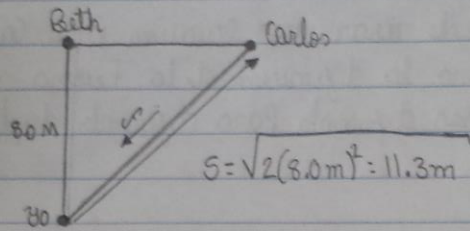 Beth
Carlos
8.0 M
S
S = √2(8.0m)² = 11.3m
yo